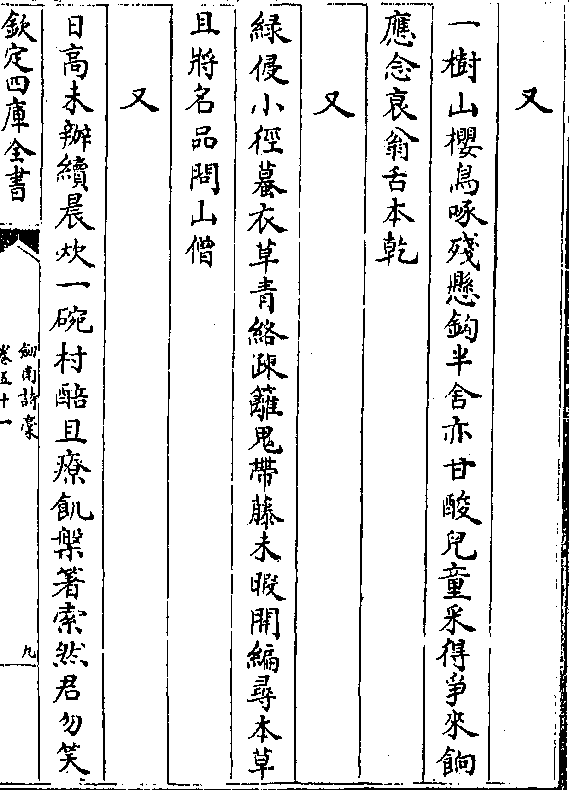 又
一樹山櫻鳥啄殘懸鈎半舍亦甘酸兒童采得爭來餉
應念衰翁舌本乾
又
緑侵小徑蟇衣草青絡疎籬鬼帶藤未暇開編尋本草
且將名品問山僧
又
日高未辦續晨炊一碗村醅且療飢槃箸索然君勿笑
欽定四庫全書
劍南詩稾
卷五十一
九